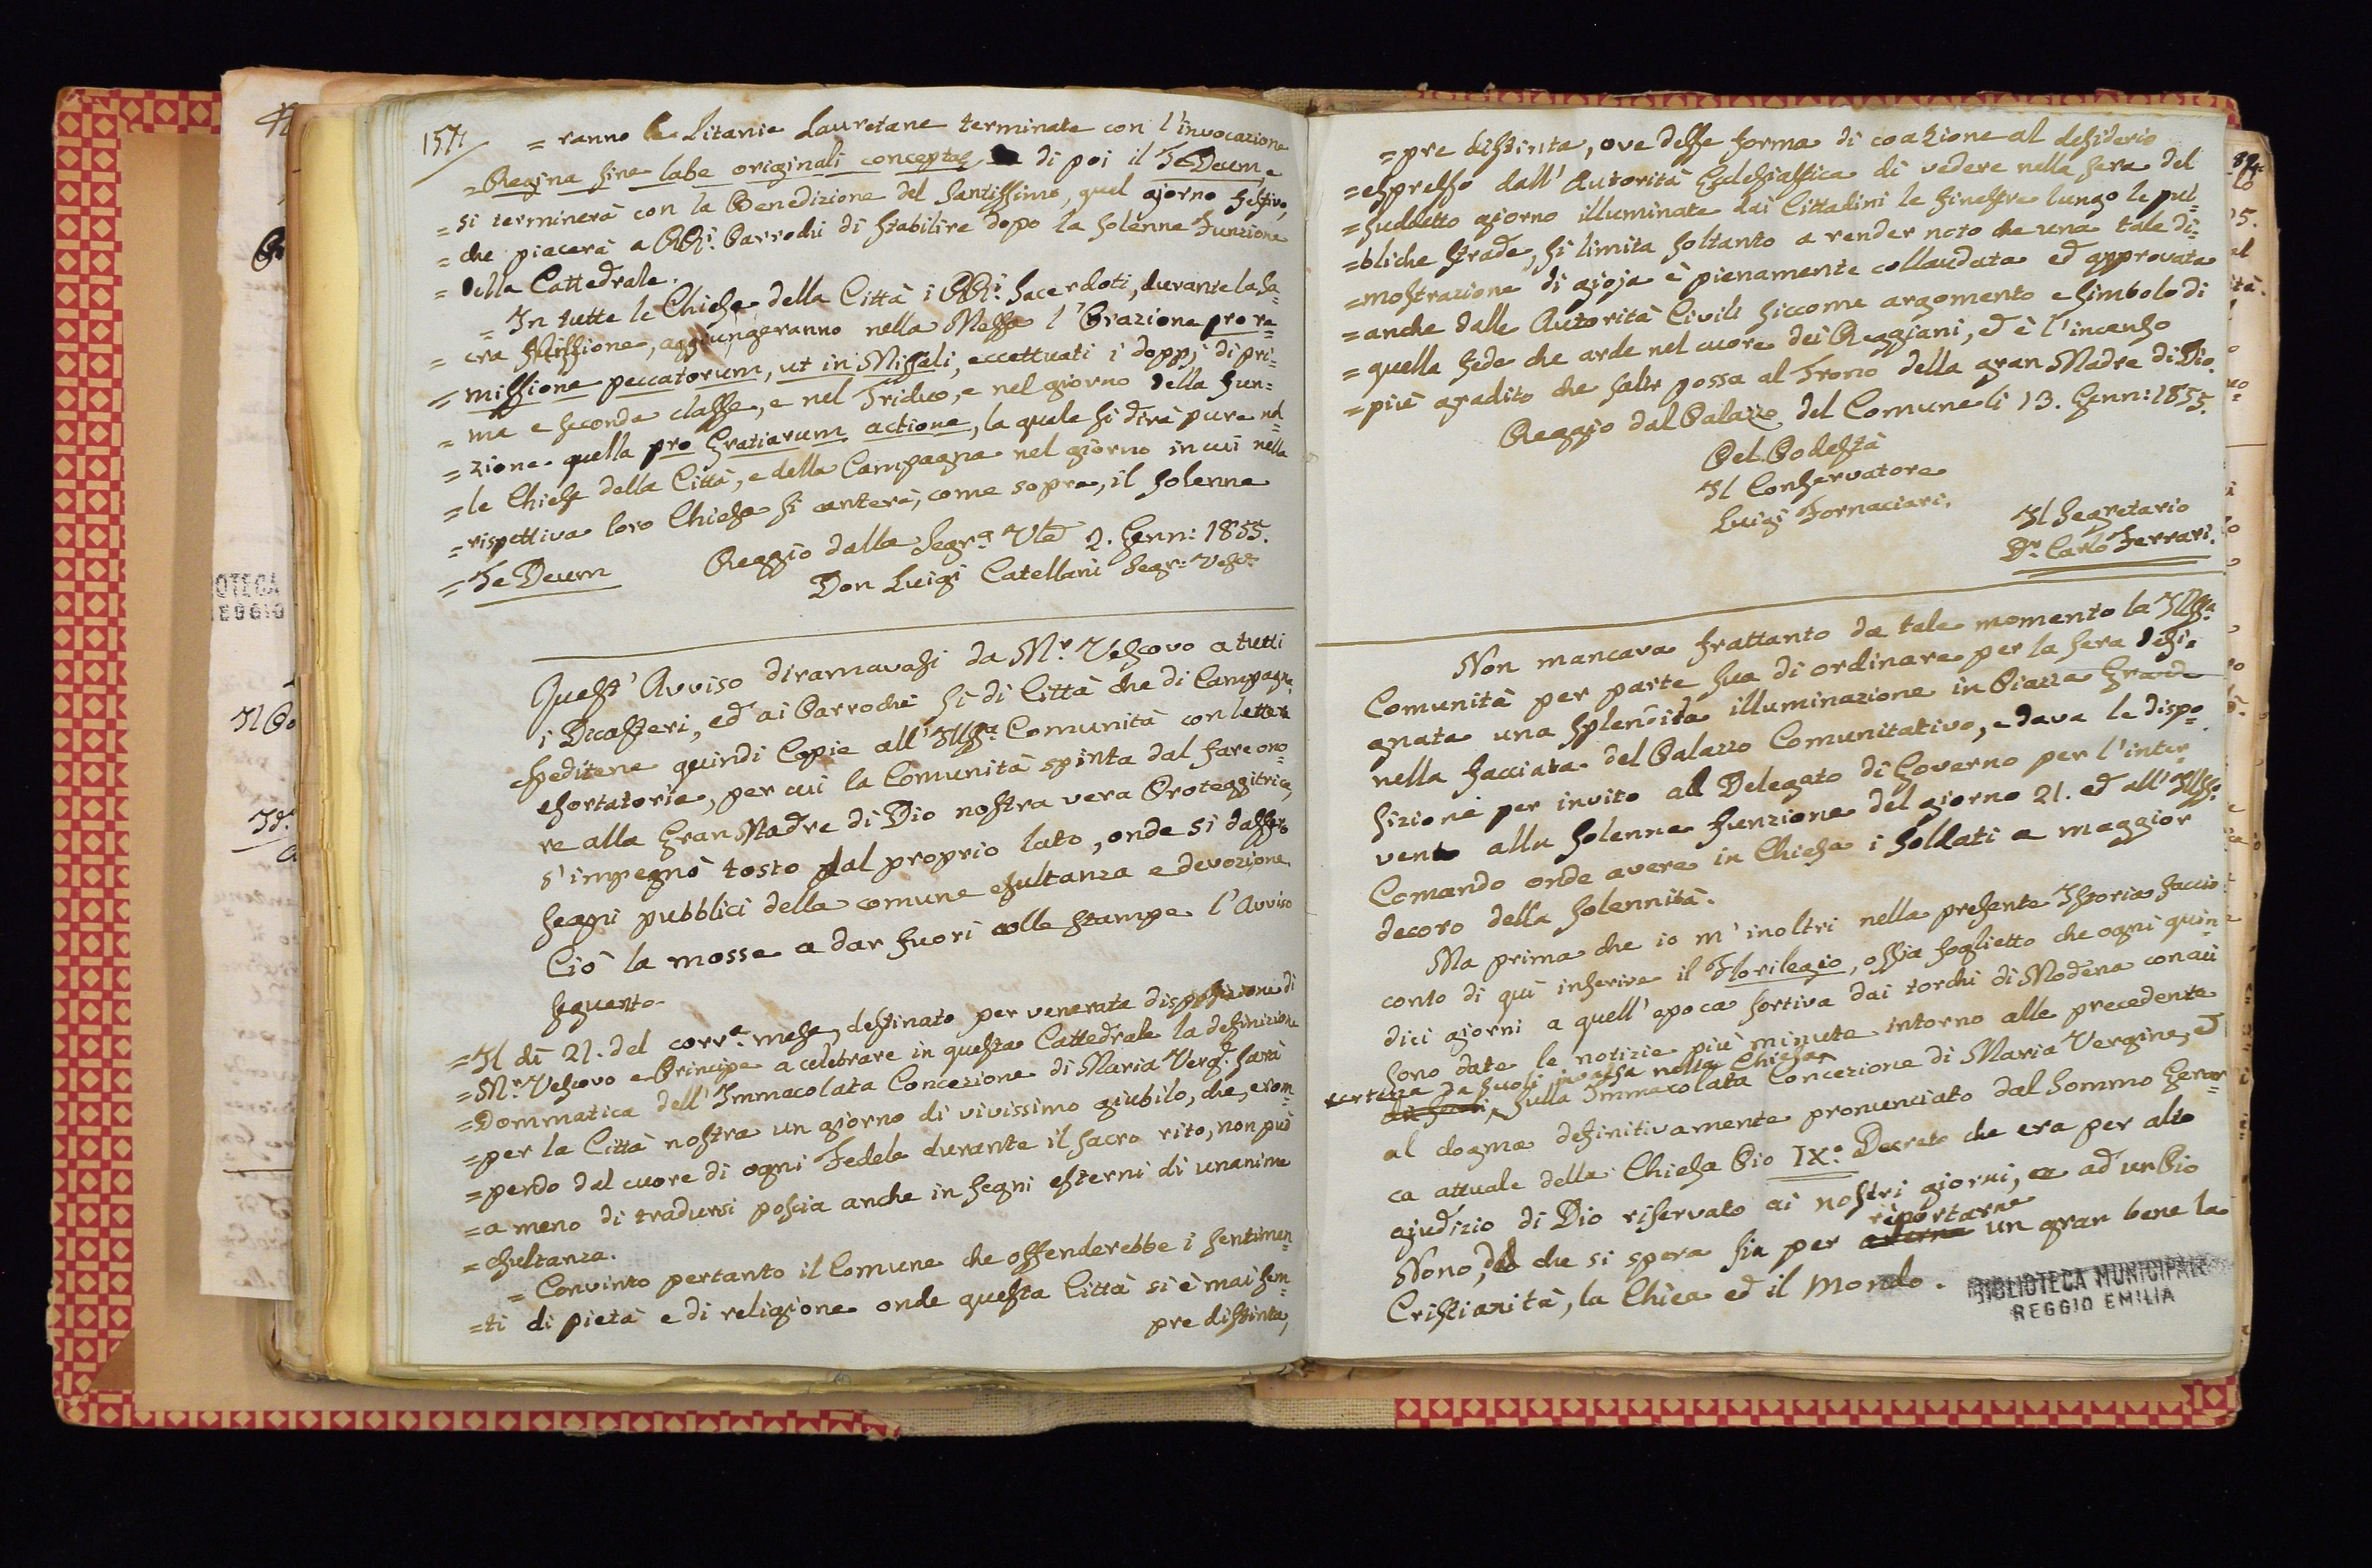 157/
= ranno le Litanie Lauretane terminate con l'invocazione
= Regina sine labe originali conceptae di poi il Te Deum, e
= si terminerà con la Benedizione del Santissimo, quel giorno festivo,
= che piacerà a RRi. Parrochi di stabilire dopo la solenne Funzione
= della Cattedrale.
= In tutte le Chiese della Città i RRi. Sacerdoti, durante la Sa=
= cra Missione, aggiungeranno nella Messa l'Orazione pro re=
= missione peccatorum, ut in Missali, eccettuati i doppj di pri=
= ma e seconda classe, e nel Triduo, e nel giorno della fun=
= zione quella pro Gratiarum actione, la quale si dirà pure nel=
= le Chiese della Città, e della Campagna nel giorno in cui nella
= rispettiva loro Chiesa si canterà, come sopra, il solenne
= Te Deum
Reggio dalla Segr.a Vle 2. Genn: 1855.
Don Luigi Catellani Segr: Vesc:
Quest' Avviso diramavasi da Mr. Vescovo a tutti
i Dicasteri, ed ai Parrochi sì di Città che di Campagna,
speditene quindi Copie all' Illsa. Comunità con lettera
esortatoria, per cui la Comunità spinta dal fare ono=
re alla Gran Madre di Dio nostra vera Proteggitrice,
s'impegnò tosto dal proprio lato, onde si dassero
segni pubblici della comune esultanza e devozione.
Ciò la mosse a dar fuori colle stampe l'Avviso
seguente
= Il dì 21. del corr.e mese, destinato per venerata disposizione di
= Mr. Vescovo e Principe a celebrare in questa Cattedrale la definizione
= Dommatica dell' Immacolata Concezione di Maria Verg: sarà
= per la Città nostra un giorno di vivissimo giubilo, che, erom=
= pendo dal cuore di ogni Fedele durante il sacro rito, non può
= a meno di tradursi poscia anche in segni esterni di unanime
= esultanza.
= Convinto pertanto il Comune che offenderebbe i sentimen=
= ti di pietà e di religione onde questa Città si è mai sem=
pre distinta,
= pre distinta, ove desse forma di coazione al desiderio
= espresso dall' Autorità Ecclesiastica di vedere nella sera del
= suddetto giorno illuminate dai Cittadini le finestre lungo le pub=
= bliche strade, si limita soltanto a render noto che una tale di=
= mostrazione di gioja è pienamente collaudata ed approvata
= anche dalle Autorità Civili siccome argomento e simbolo di
= quella fede che arde nel cuore dei Reggiani, ed è l'incenso
= più gradito che salir possa al Trono della gran Madre di Dio.
Reggio dal Palazzo del Comune li 13. Genn: 1855.
Pel Podestà
Il Conservatore
Luigi Fornaciari.
Il Segretario
Dr. Carlo Ferrari.
Non mancava frattanto da tale momento la Illsa.
Comunità per parte sua di ordinare per la sera desi=
gnata una splendida illuminazione in Piazza Grande
nella facciata del Palazzo Comunitativo, e dava le dispo=
sizioni per invito al Delegato di Governo per l'inter=
vento alla solenne funzione del giorno 21. ed all' Illso.
Comando onde avere in Chiesa i soldati a maggior
decoro della solennità.
Ma prima che io m'inoltri nella presente Istoria faccio
conto di quì inserire il Florilegio, ossia foglietto che ogni quin=
dici giorni a quell' epoca sortiva dai torchi di Modena con cui
sono date le notizie più minute intorno alle precedente
certezza da suoli invalsa nella Chiesa
sulla Immacolata Concezione di Maria Vergine, e
al dogma definitivamente pronunciato dal Sommo Gerar=
ca attuale della Chiesa Pio IXo. Decreto che era per alto
giudizio di Dio riservato ai nostri giorni, ad un Pio
Nono, che si spera sia per riportarne un gran bene la
Cristianità, la Chiea ed il mondo.
BIBLIOTECA MUNICIPALE
REGGIO EMILIA